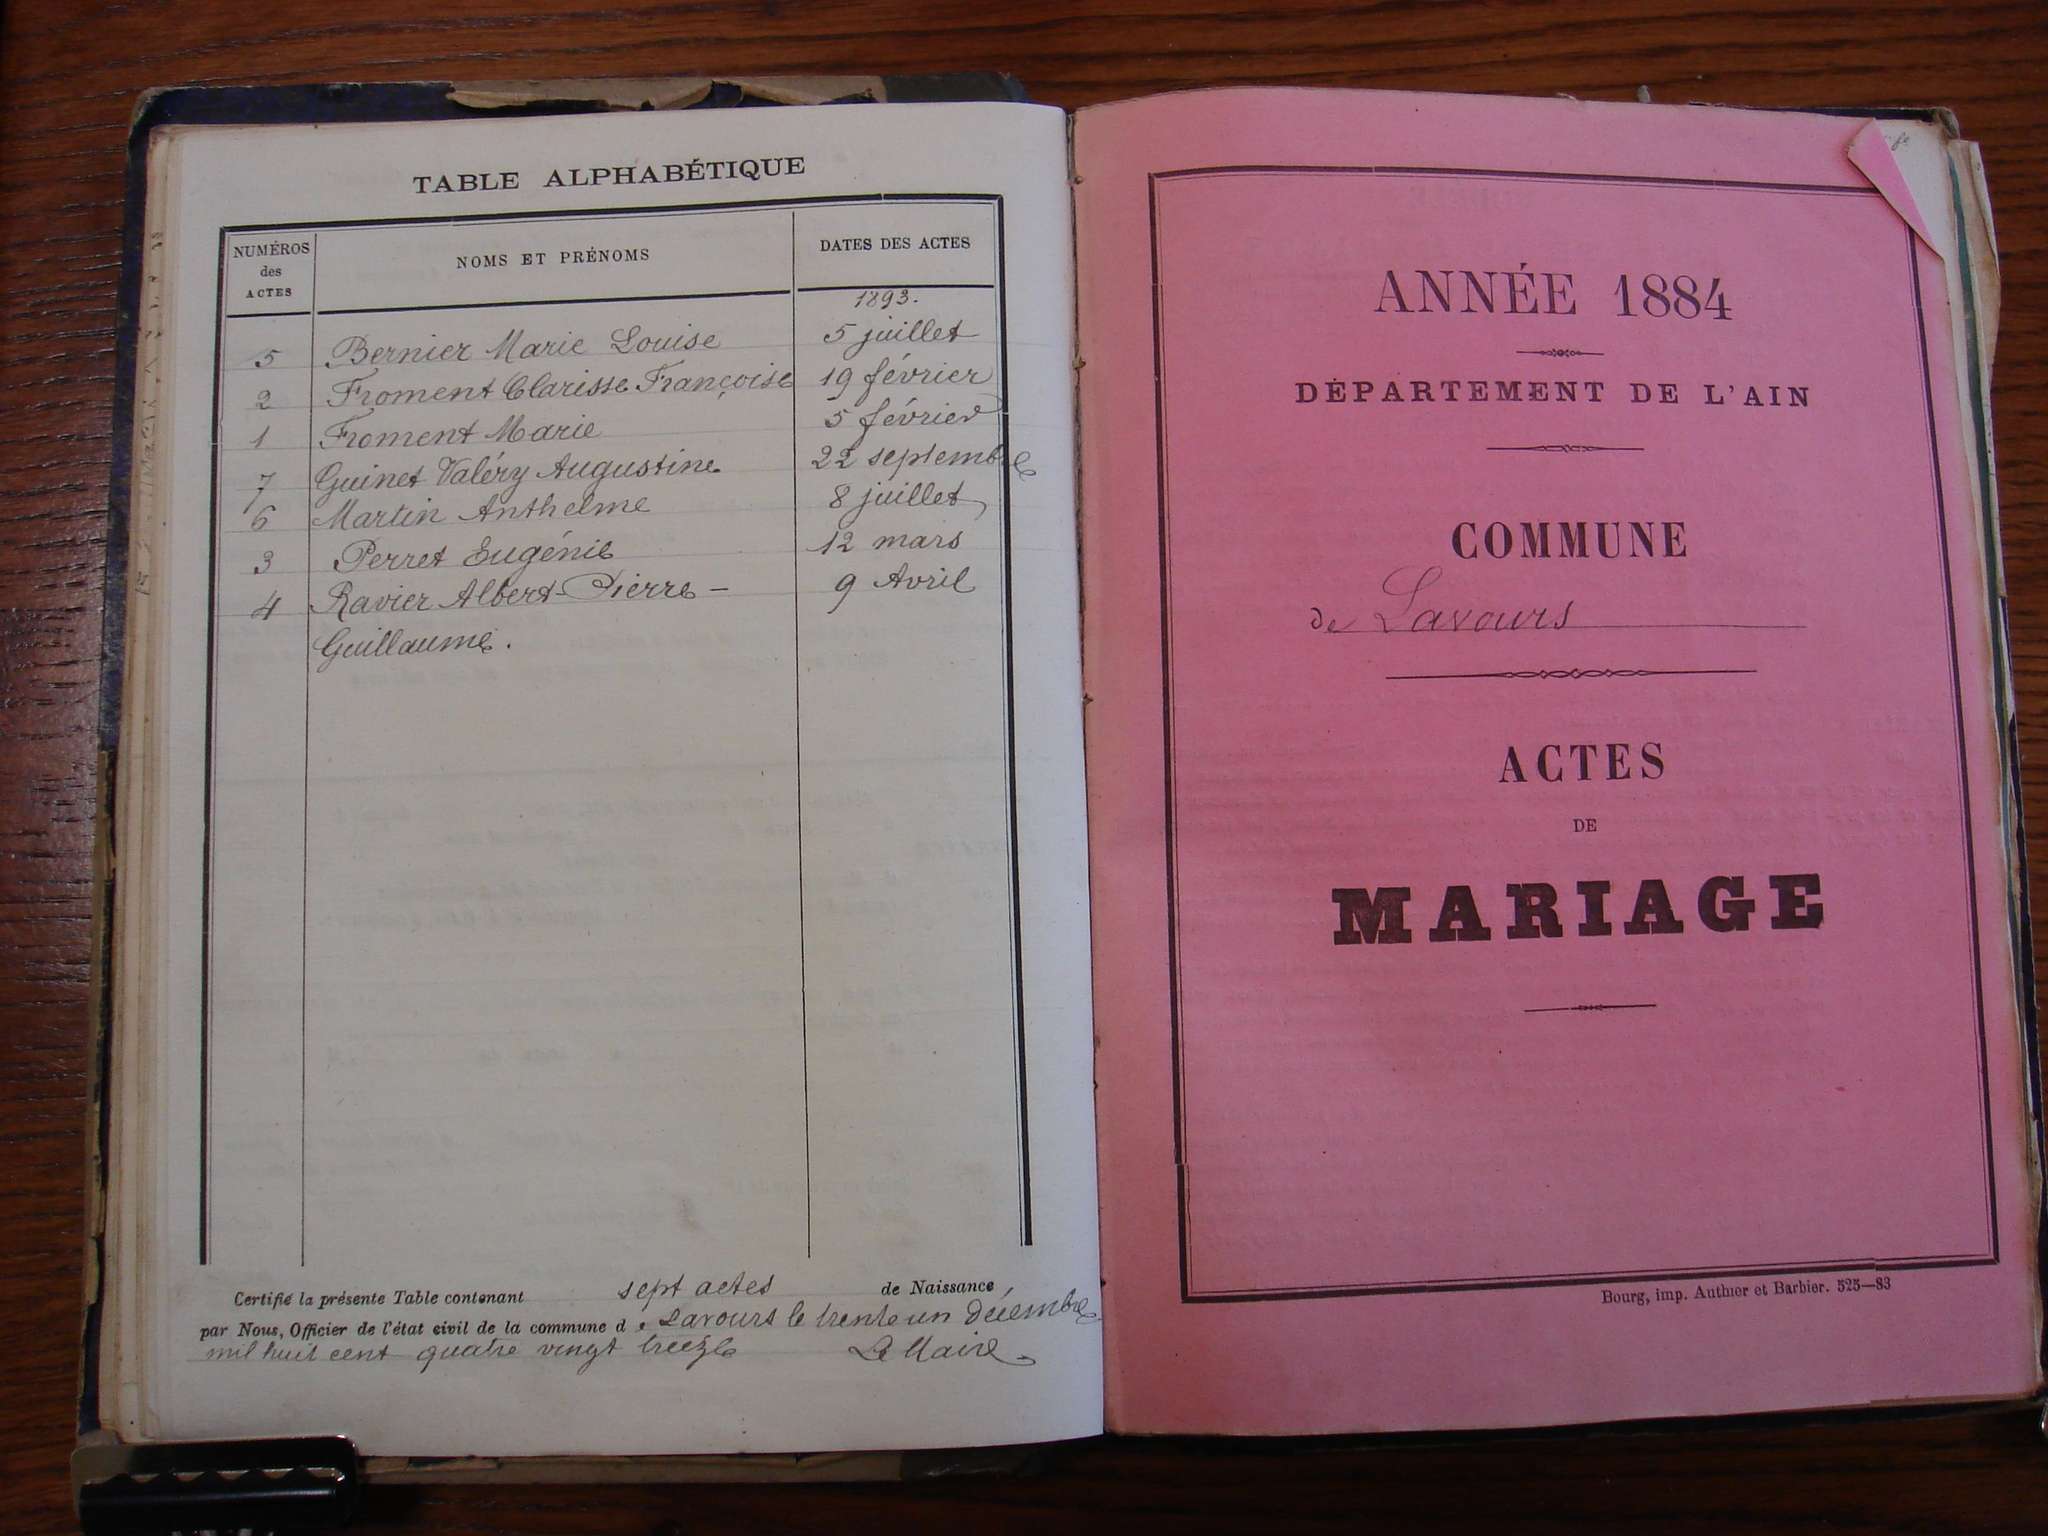 TABLE ALPHABÉTIQUE
NUMÉROS des ACTES NOMS ET PRÉNOMS DATES DES ACTES
1893.
5 Bernier Marie Louise 5 juillet
2 Froment Clarisse Françoise 19 février
1 Froment Marie 5 février
7 Guinet Valéry Augustine 22 septembre
6 Martin Anthelme 8 juillet
3 Perret Eugénie 12 mars
4 Ravier Albert-Pierre- 9 Avril
Guillaume.
Certifié la présente Table contenant sept actes de Naissance
par Nous, Officier de l'état civil de la commune de Lavours le trente un décembre
mil huit cent quatre vingt treize Le Maire
ANNÉE 1884
DÉPARTEMENT DE L'AIN
COMMUNE
de Lavours
ACTES
DE
MARIAGE
Bourg, imp. Authier et Barbier. 525—83